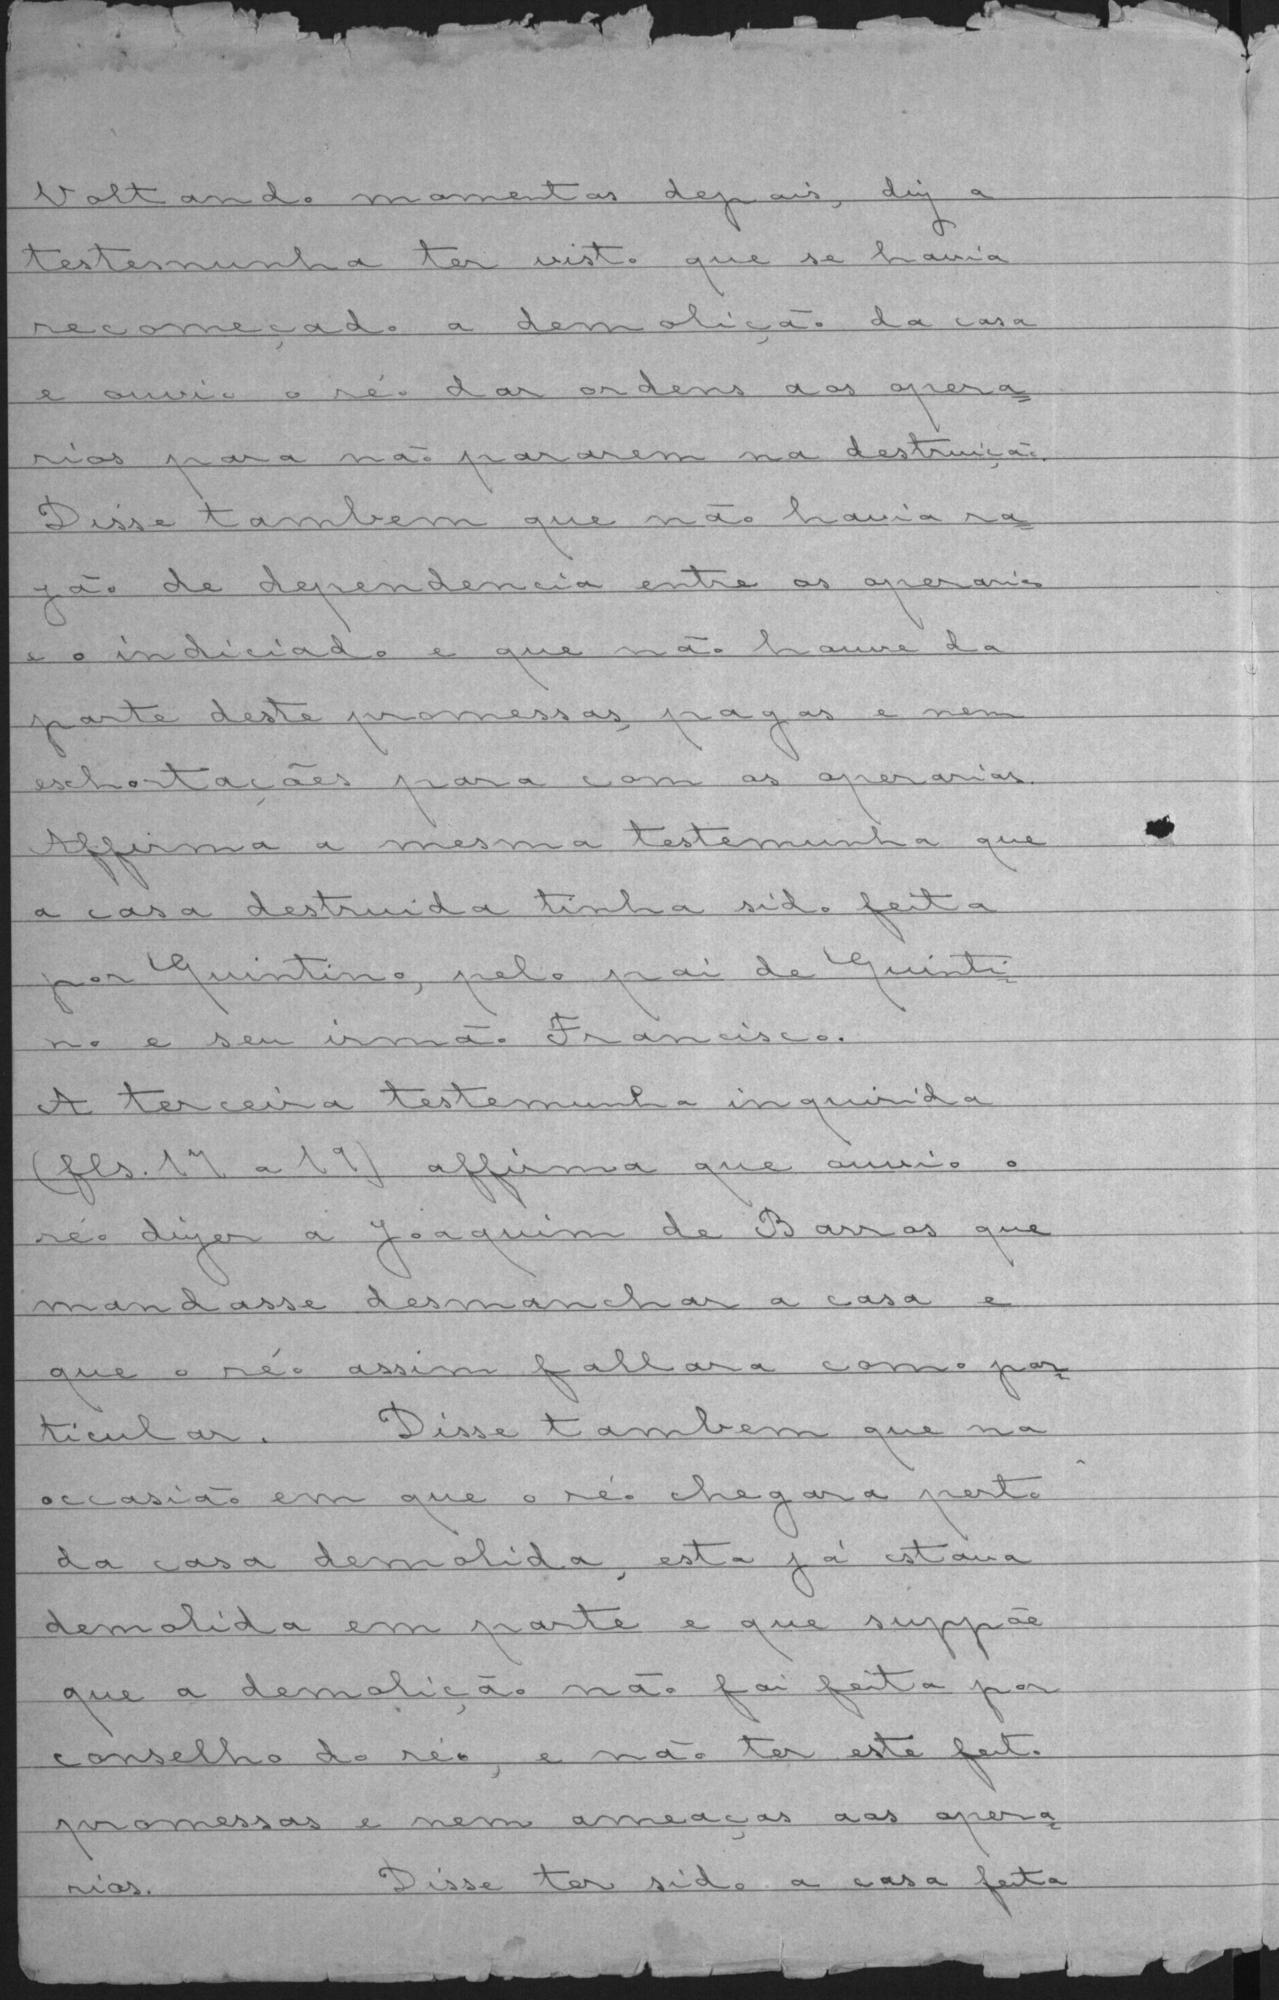 Voltando momentos depois, diz a
testemunha ter visto que se havia
recomeçado a demolição da casa
e ouvio o réo dar ordens aos opera=
rios para não pararem na destruição.
Disse tambem que não havia ra=
zão de dependencia entre os operarios
e o indiciado e que não houve da
parte deste promessas, pagas e nem
exhortações para com os operarios.
Affirma a mesma testemunha que
a casa destruida tinha sido feita
por Quintino, pelo pai de Quinti=
no e seu irmão Francisco.
A terceira testemunha inquirida
(fls. 17 a 19) affirma que ouvio o
réo dizer a Joaquim de Barros que
mandasse desmanchar a casa e
que o réo assim fallara como par=
ticular. Disse tambem que na
occasião em que o réo chegara perto
da casa demolida, esta já estava
demolida em parte e que suppõe
que a demolição não foi feita por
conselho do réo, e não ter este feito
promessas e nem ameaças aos opera=
rios. Disse ter sido a casa feita